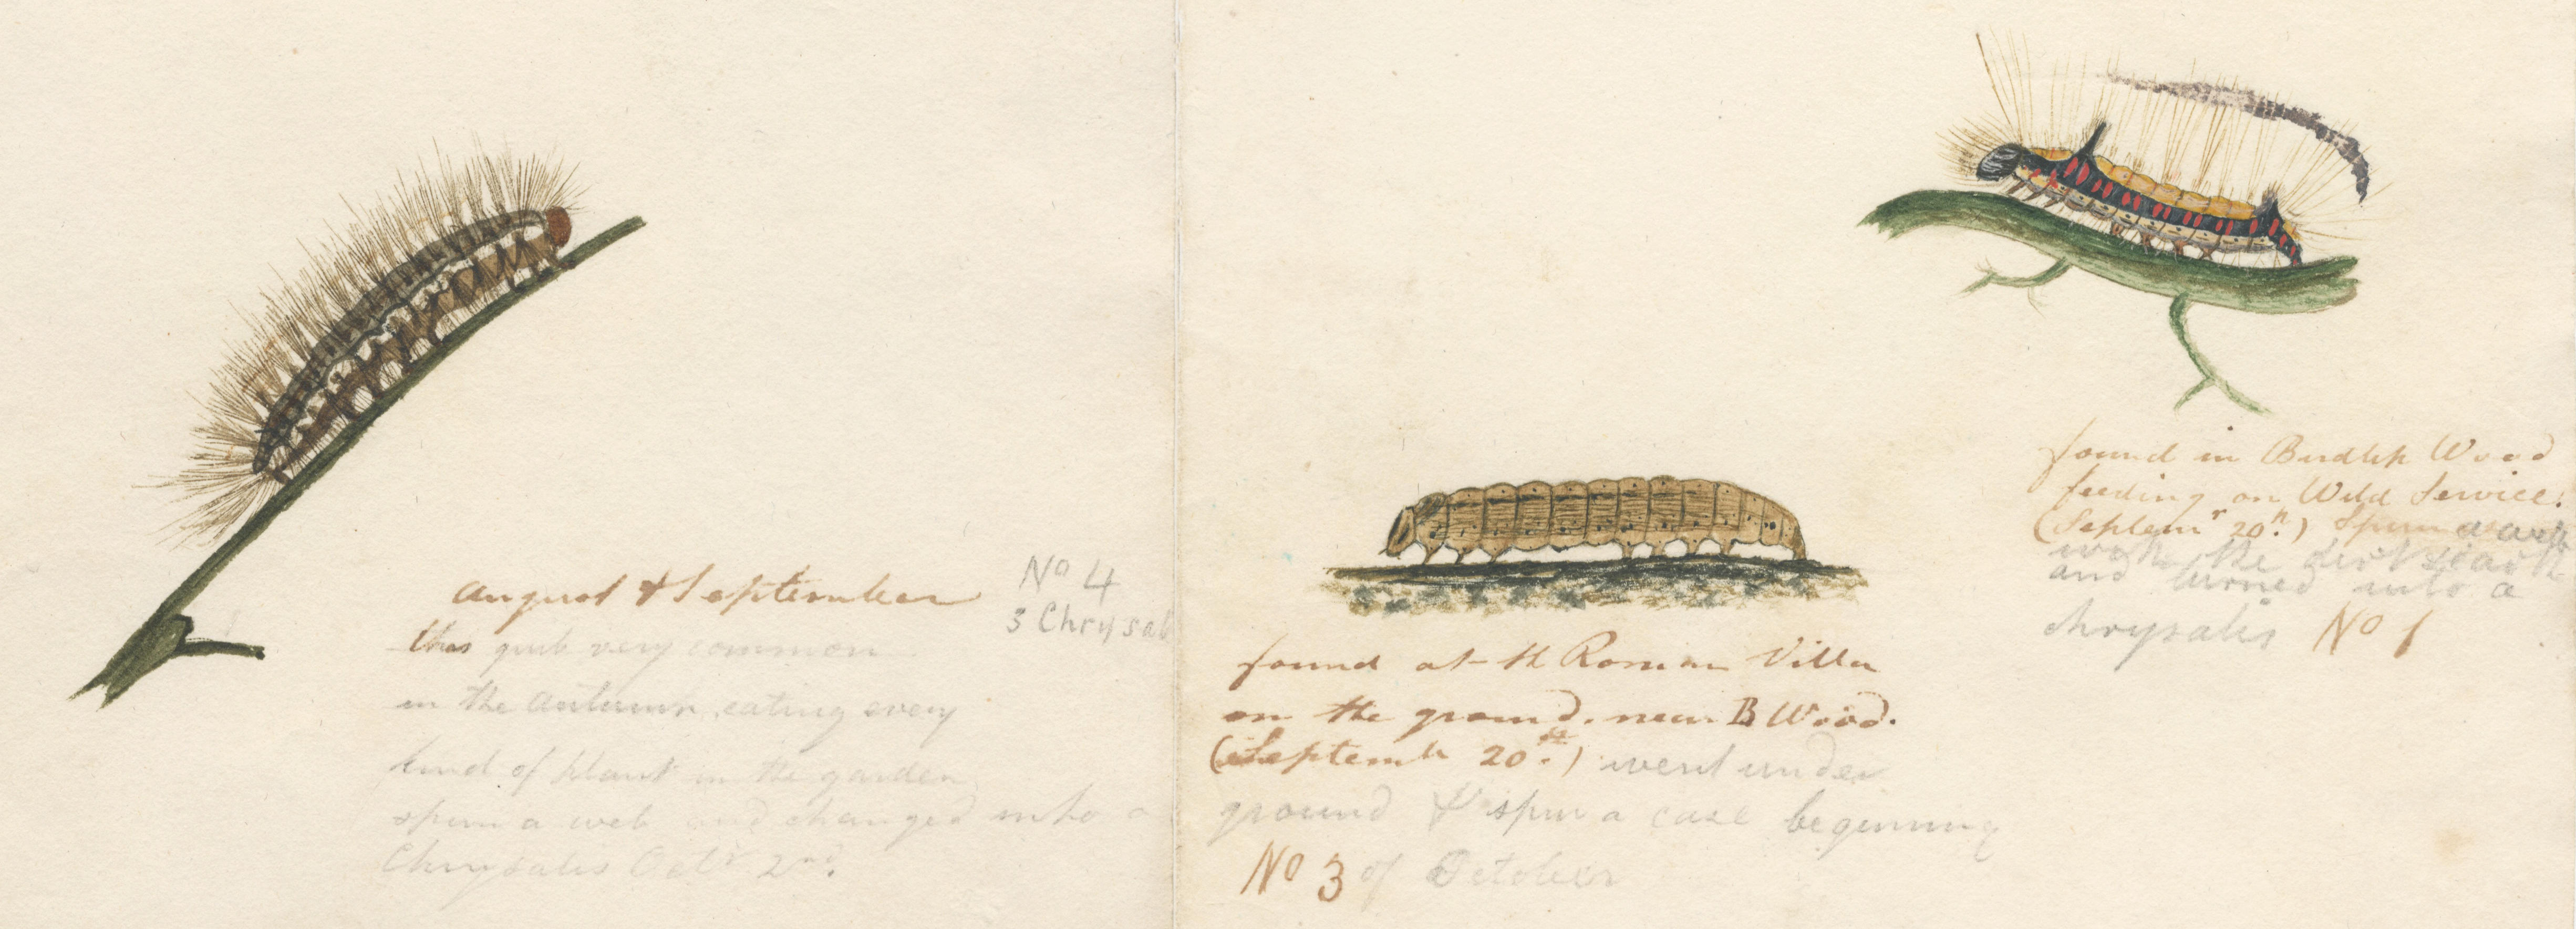 august & September
this grub very common
in the autumn, eating every
kind of plant in the garden
spun a web and changed into a
Chrysalis Octr 2nd.
No 4
3 Chrysal
found at the Roman Villa
on the ground. near B Wood.
(Septemb 20th.) went under
ground & spun a case beginning
No 3 of October
found in Birdlip Wood
feeding on Wild Service.
(Septemr 20th.) Spun a
with the dirt
and turned into a
chrysalis No 1